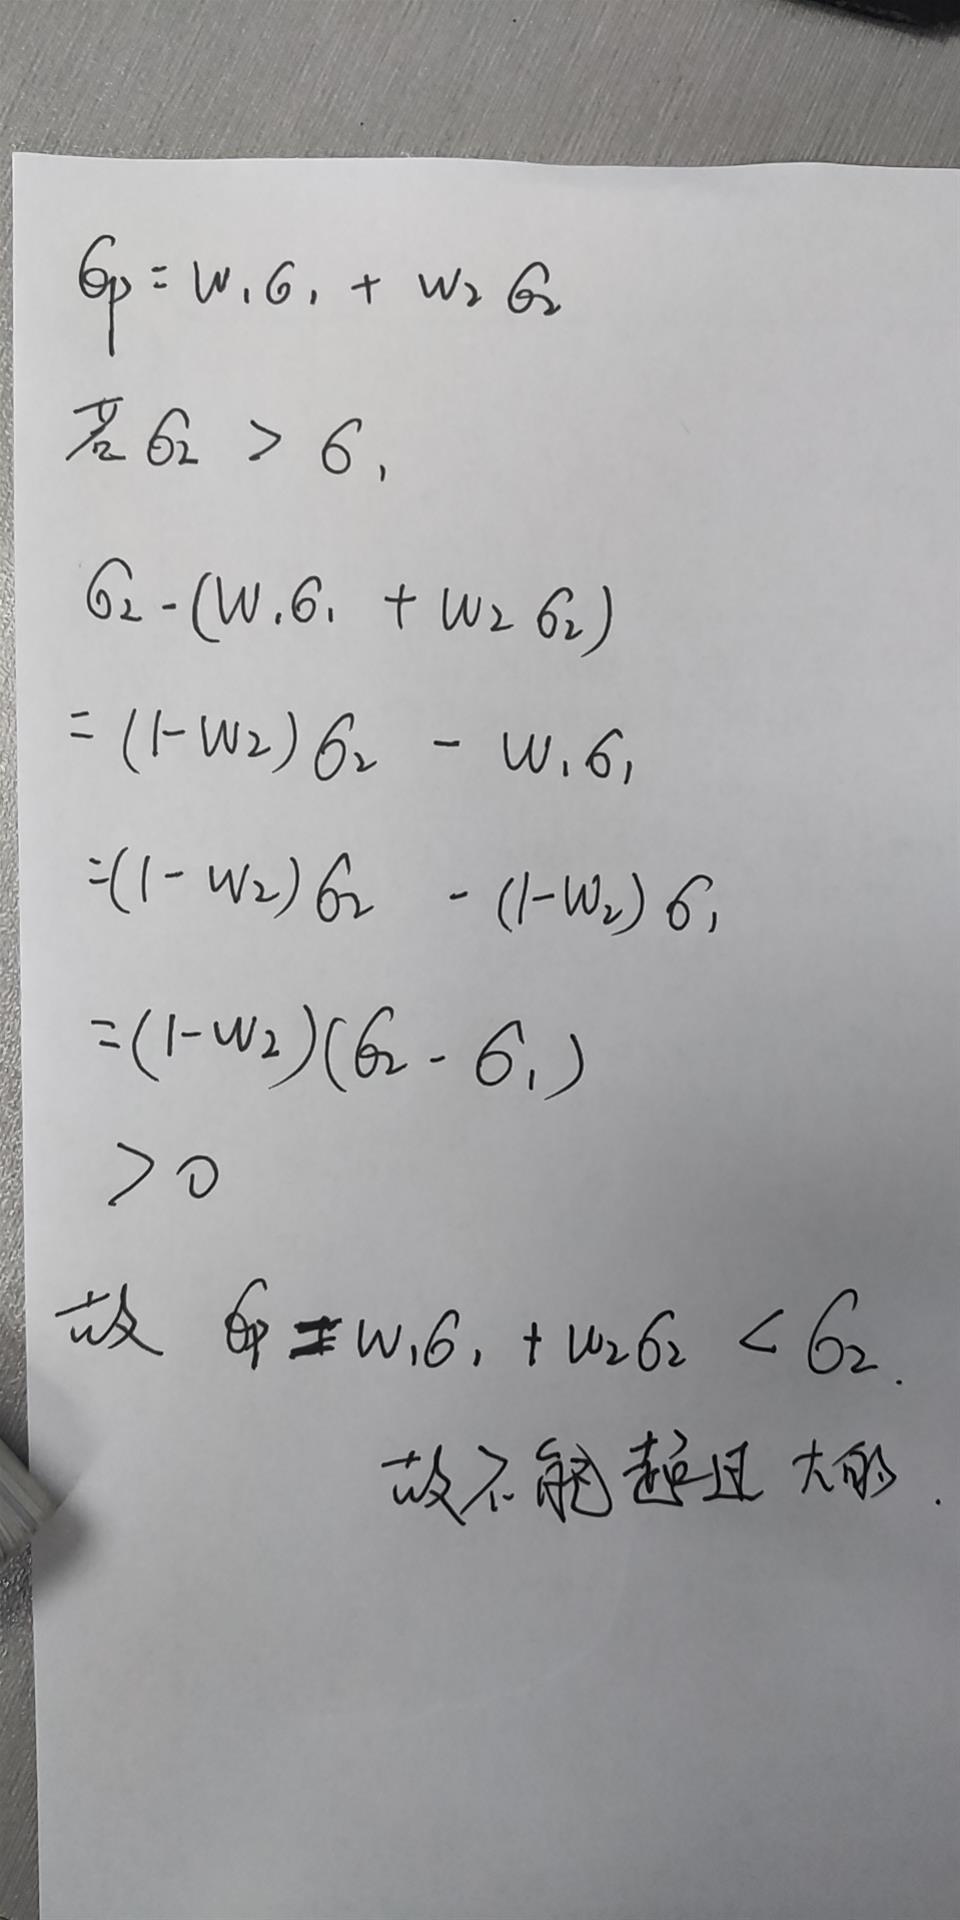 σp = w₁σ₁ + w₂σ₂
若 σ₂ > σ₁
σ₂-(w₁σ₁ + w₂σ₂)
= (1-w₂)σ₂ - w₁σ₁
=(1-w₂)σ₂ - (1-w₂)σ₁
=(1-w₂)(σ₂-σ₁)
>0
故 σp = w₁σ₁ + w₂σ₂ < σ₂.
故不能超过大的.